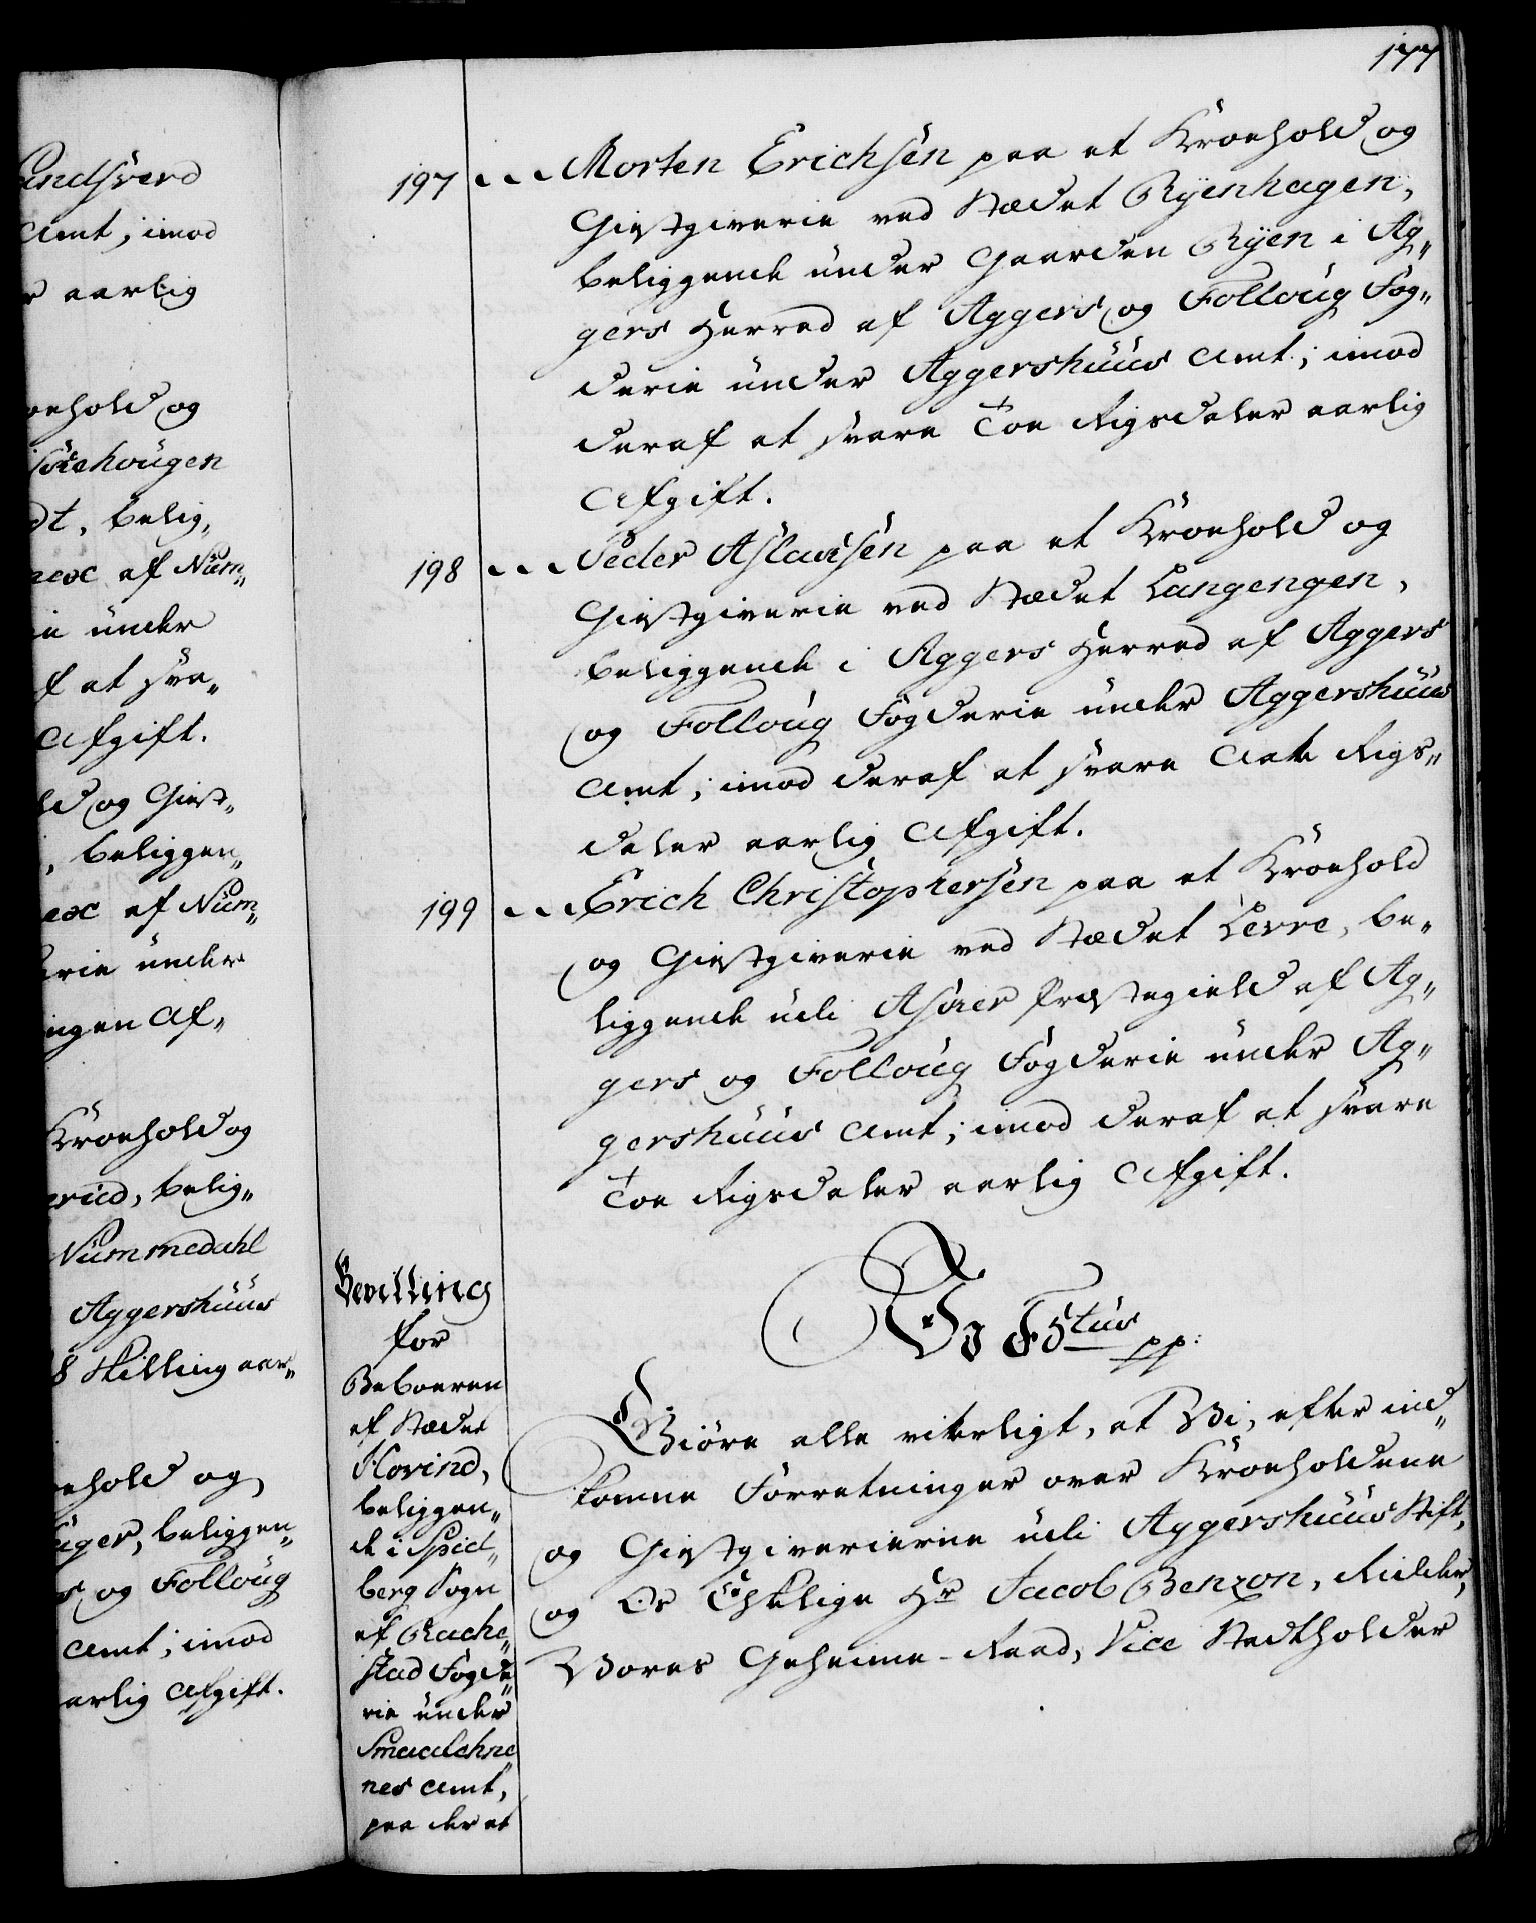 177
andsverd
Amt, imod
r aarlig
oehold og
dt, belig„
nex af Num„
ie under
f at sva„
Afgift.
ld og Giest„
, beliggen„
ex af Num„
erie under
ingen Af„
Kroehold og
erud, belig„
Nummedahl
Aggershuus
8 Skilling aar„
oehold og
uger, beliggen„
s og Folloug
Amt; imod
aarlig Afgift.
197 Morten Erichsen paa et Kroehold og
Giestgiverie ved Stædet Ryenhagen,
beliggende under Gaarden Ryen i Ag„
gers Herred af Aggers og Folloug Fog„
derie under Aggershuus Amt; imod
deraf at svare Toe Rigsdaler aarlig
Afgift.
198 Peder Aslacsen paa et Kroehold og
Giestgiverie ved Stædet Langengen,
beliggende i Aggers Herred af Aggers
og Folloug Fogderie under Aggershuus
Amt; imod deraf at svare Aate Rigs„
daler aarlig Afgift.
199 Erich Christophersen paa et Kroehold
og Giestgiverie ved Stædet Levre, be„
liggende udi Asker Præstegield af Ag„
gers og Folloug Fogderie under Ag„
gershuus Amt; imod deraf at svare
Toe Rigsdaler aarlig Afgift.
Bevilling
for
Beboeren
af Stædet
Hovind,
beliggen„
de i Spid„
berg Sogn
af Rache„
stad Fogde„
rie under
Smaalehne„
nes Amt,
paa der at
Vo F5tus pp:
Giøre alle viterligt, at Vi, efter ind„
komne Forretninger over Kroeholdene
og Giestgiverierne udi Aggershuus Stift,
og Os Elskelige Hr Jacob Benzon, Ridder,
Vores Geheime-Raad, Vice Stadtholder